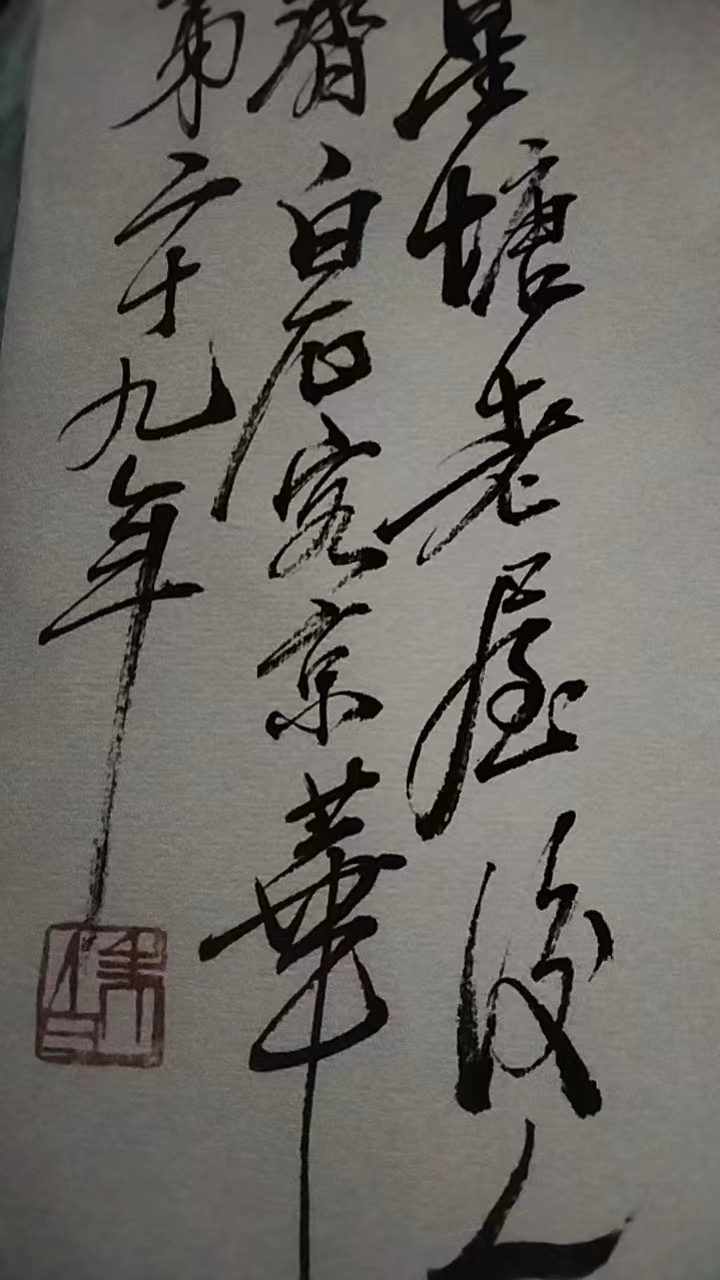 星塘老屋後人
齊白石客京華
第二十九年